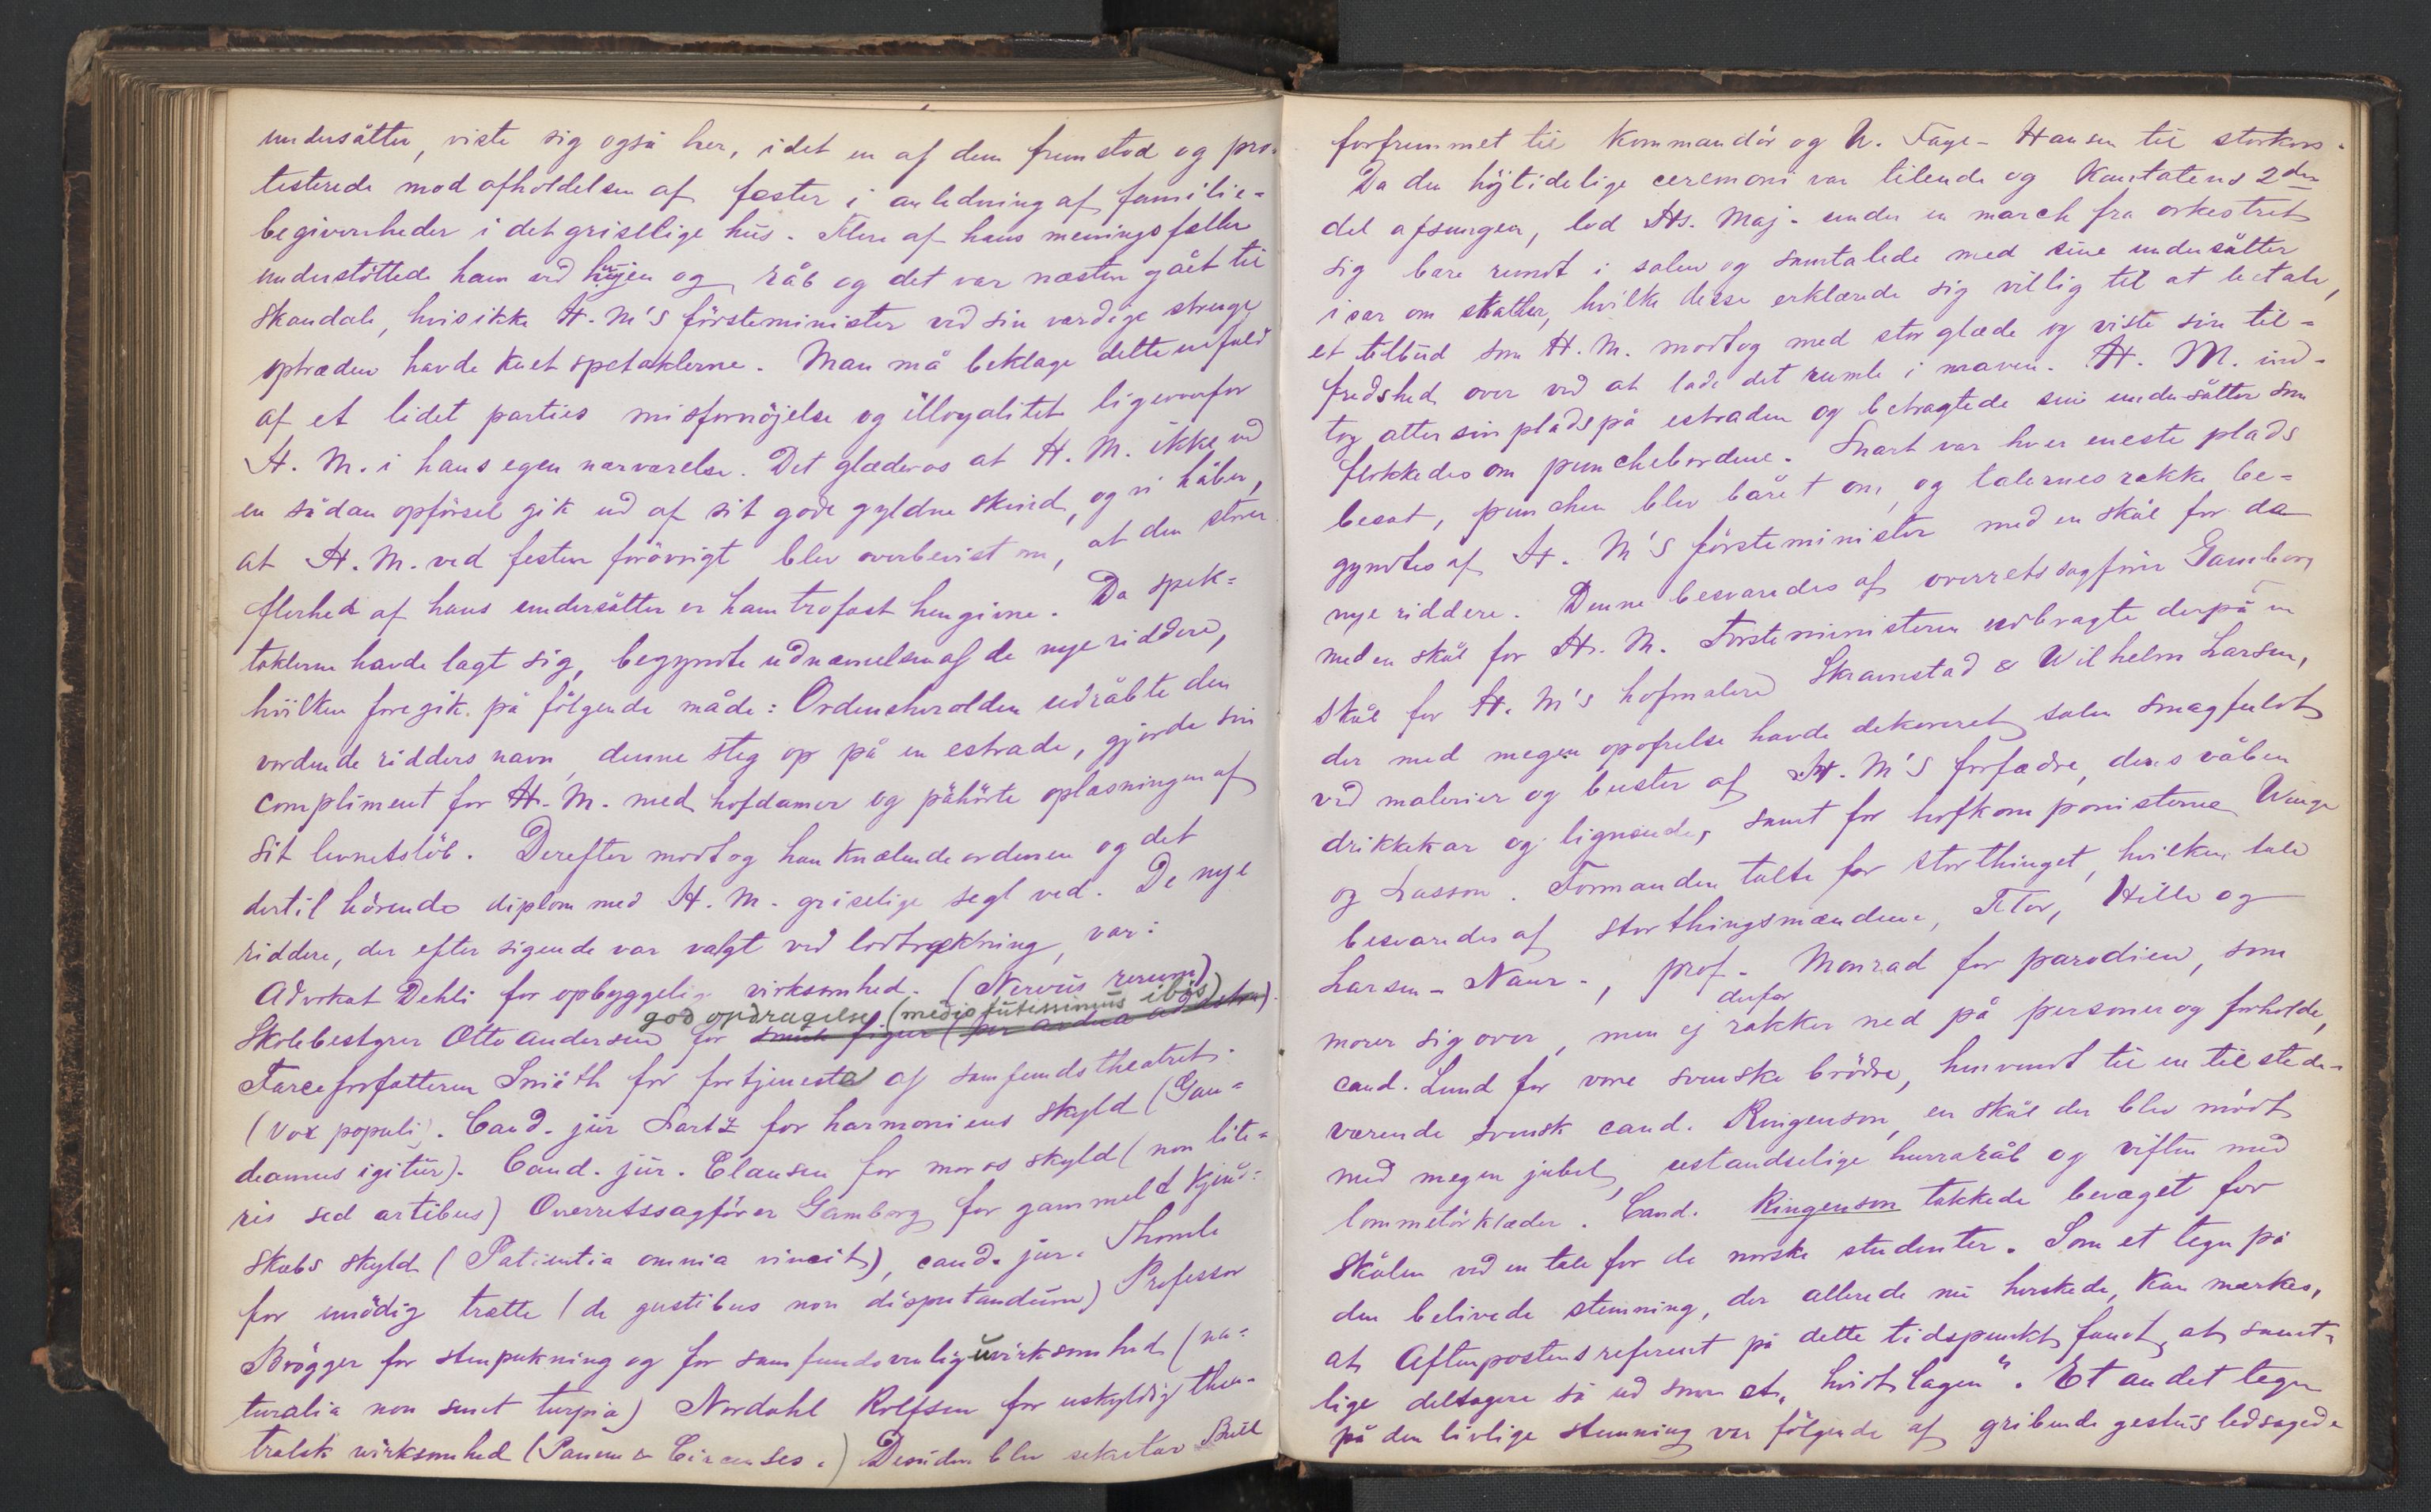 undersåtter, viste sig også her, idet en af dem fremstod og pro-
testerede mod afholdelsen af fester i anledning af familie-
begivenheder i det griselige hus. Flere af hans meningsfæller
understöttede ham ved hujen og råb og det var næsten gået til
skandale, hvis ikke H. M's försteminister ved sin værdige strenge
optræden havde kuet spetaklerne. Man må beklage dette udfald
af et lidet parties misfornöjelse og illoyalitet ligeoverfor
H. M. i hans egen nærværelse. Det glæder os at H. M. ikke ved
en sådan opförsel gik ud af sit gode gyldne skind, og vi håber,
at H. M. ved festen forövrigt blev overbevist om, at den store
flerhed af hans undersåtter er ham trofast hengivne. Da spek-
taklerne havde lagt sig, begyndte udnævnelsen af de nye riddere,
hvilken foregik på fölgende måde: Ordensherolden udråbte den
vordende ridders navn, denne steg op på en estrade, gjorde sin
compliment for H. M. med hofdamer og påhörte oplæsningen af
sit levnetslöb. Derefter modtog han knælende ordenen og det
dertil hörende diplom med H. M. griselige segl ved. De nye
riddere, der efter sigende var valgt ved lodtrækning, var:
Advokat Dehli for opbyggelig virksomhed. (Nervus rerum)
god opdragelse. (medio tutissimus ibis)
Skolebestyrer Otto Andersen for smuk figur (per ardua ad astra).
Farceforfatteren Smith for fortjeneste af samfundstheatret.
(vox populi). Cand. jur Sartz for harmoniens skyld (Gau-
deamus igitur). Cand. jur. Clausen for moros skyld (non lite-
ris sed artibus) Overretssagförer Gamborg for gammelt kjend-
skabs skyld (Patientia omnia vincit), cand. jur. Thomle
for unödig trætte (de gustibus non disputandum) Professor
Brögger for stenpukning og for samfundsvenlig uvirksomhed (na-
turalia non sunt turpia) Nordahl Rolfsen for uskyldig thea-
tralsk virksomhed (Panem & Circenses.) Desuden blev sekretær Bull
forfremmet til kommandör og N. Faye-Hansen til storkors.
Da den höjtidelige ceremoni var tilende og kantatens 2den
del afsungen, lod Hs. Maj. under en march fra orkestret
sig bære rundt i salen og samtalede med sine undersåtter
især om skatter, hvilke disse erklærede sig villig til at betale,
et tilbud som H. M. modtog med stor glæde og viste sin til-
fredshed over ved at lade det rumle i maven. H. M. ind-
tog atter sin plads på estraden og betragtede sine undersåtter som
flokkedes om punchebordene. Snart var hver eneste plads
besat, punchen blev båret om, og talernes række be-
gyndtes af H. M's försteminister med en skål for de
nye riddere. Denne besvaredes af overretssagförer Gamborg
med en skål for H. M. Försteministeren udbragte derpå en
skål for H. M's hofmalere Skramstad & Wilhelm Larsen,
der med megen opofrelse havde dekoreret salen smagfuldt
ved malerier og buster af H. M's forfædre, deres våben
drikkekar og lignende, samt for hofkomponisterne Winge
og Lasson. Formanden talte for storthinget, hvilken tale
besvaredes af storthingsmændene, Flor, Hille og
Larsen-Naur., prof. Monrad for parodien, som
derfor
morer sig over, men ej rakker ned på personer og forholde,
cand. Lund for vore svenske brödre, henvendt til en tilstede-
værende svensk cand. Ringenson, en skål der blev mödt
med megen jubel, ustandselige hurraråb og viften med
lommetörklæder. Cand. Ringenson takkede bevæget for
skålen ved en tale for de norske studenter. Som et tegn på
den belivede stemning, der allerede nu herskede, kan mærkes,
at Aftenpostens referent på dette tidspunkt fandt, at samt-
lige deltagere så ud som et „hvidt lagen". Et andet tegn
på den livlige stemning var fölgende af gribende gestus ledsagede